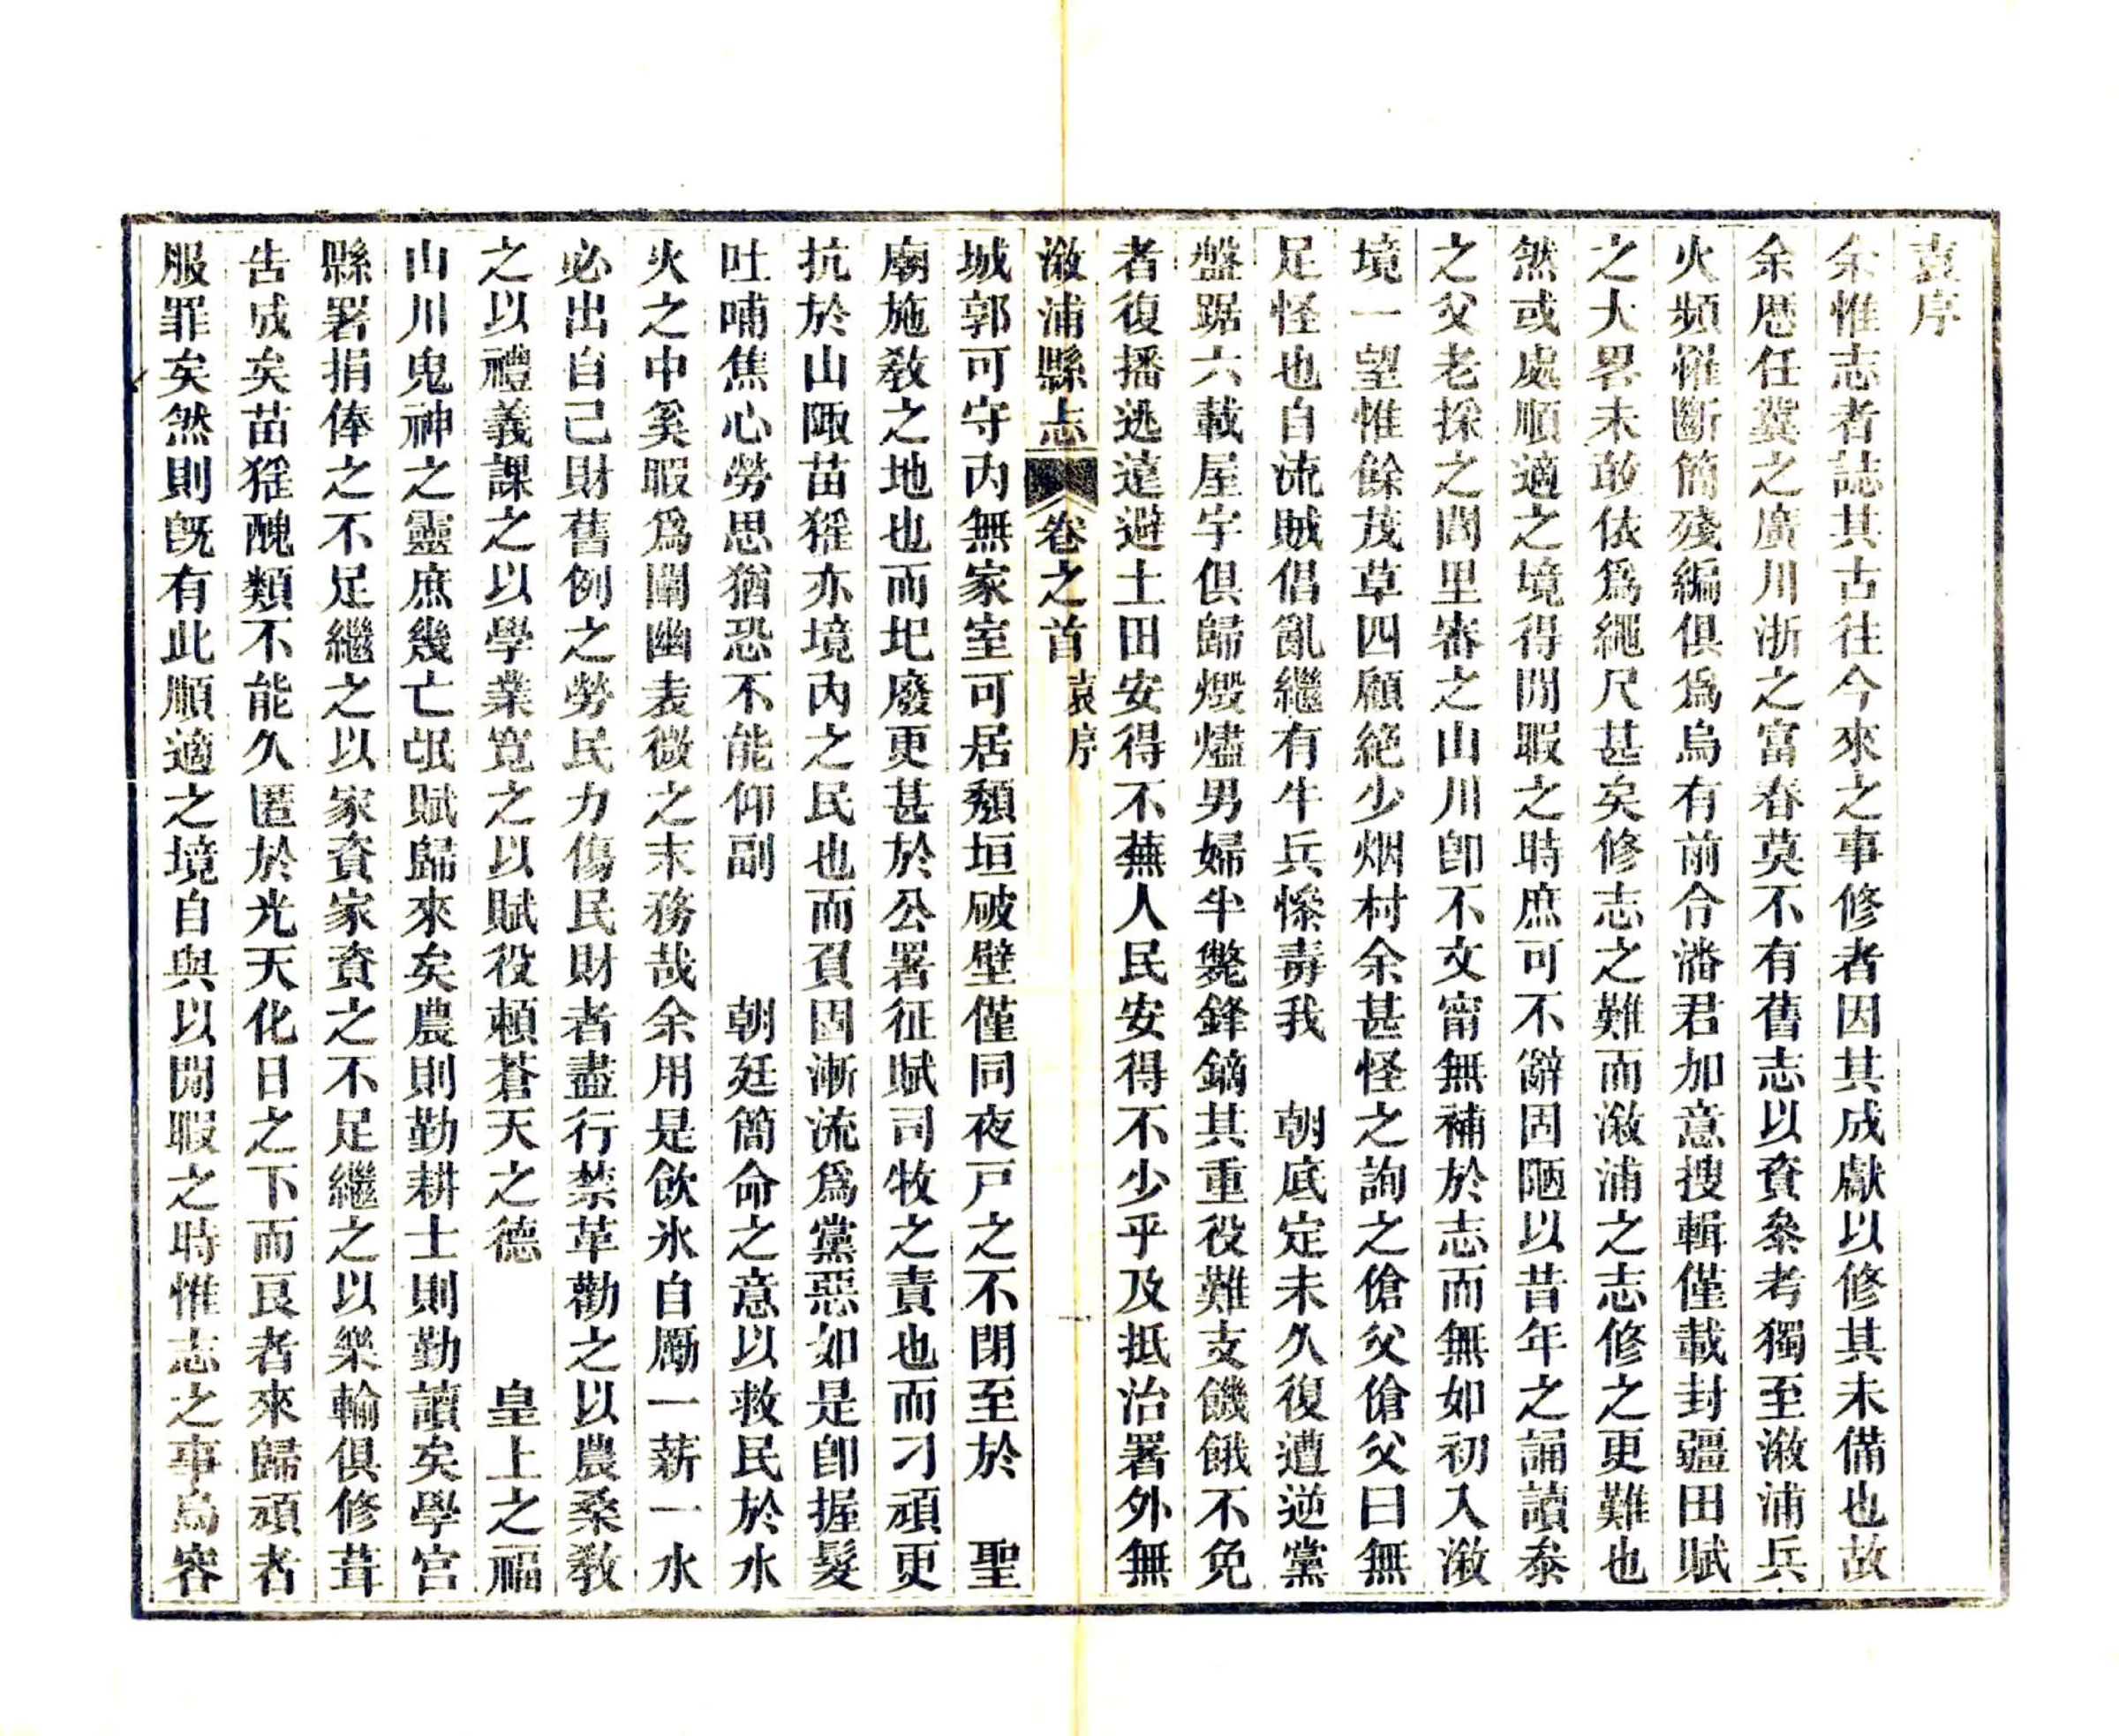 袁序
余惟志者誌其古往今來之事修者因其成獻以修其未備也故
余歷任冀之廣川浙之富春莫不有舊志以資叅考獨至漵浦兵
火頻摧斷簡殘編俱爲烏有前令潘君加意搜輯僅載封疆田賦
之大畧未敢依爲繩尺甚矣修志之難而漵浦之志修之更難也
然或處順適之境得閒暇之時庶可不辭固陋以昔年之誦讀叅
之父老採之閭里審之山川卽不文甯無補於志而無如初入漵
境一望惟餘茂草四顧絕少烟村余甚怪之詢之傖父傖父曰無
足怪也自流賊倡亂繼有牛兵慘毒我　朝底定未久復遭逆黨
盤踞六載屋宇俱歸燬燼男婦半斃鋒鏑其重役難支饑餓不免
者復播逃遠避土田安得不蕪人民安得不少乎及抵治署外無
漵浦縣志　卷之首　袁序
城郭可守內無家室可居頹垣破壁僅同夜戸之不閉至於　聖
廟施敎之地也而圯廢更甚於公署征賦司牧之責也而刁頑更
抗於山陬苗猺亦境內之民也而負固漸流爲黨惡如是卽握髮
吐哺焦心勞思猶恐不能仰副　　朝廷簡命之意以救民於水
火之中奚暇爲闡幽表微之末務哉余用是飮氷自勵一薪一水
必出自己財舊例之勞民力傷民財者盡行禁革勸之以農桑敎
之以禮義課之以學業寬之以賦役賴蒼天之德　　皇上之福
山川鬼神之靈庶幾亡氓賦歸來矣農則勤耕士則勤讀矣學宮
縣署捐俸之不足繼之以家資家資之不足繼之以樂輸俱修葺
告成矣苗猺醜類不能久匿於光天化日之下而良者來歸頑者
服罪矣然則旣有此順適之境自與以閒暇之時惟志之事烏容